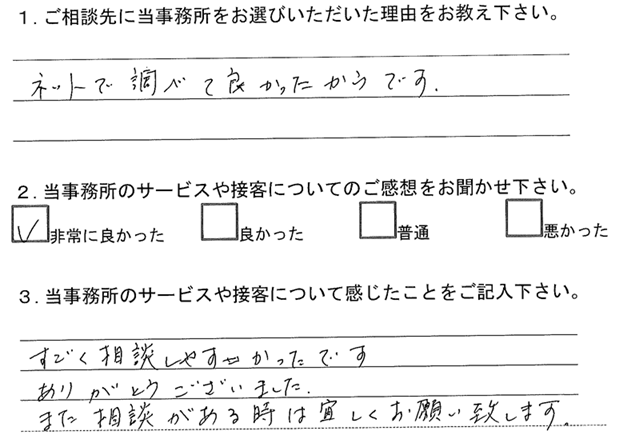 1.ご相談先に当事務所をお選びいただいた理由をお教え下さい。
ネットで調べて良かったからです.
2.当事務所のサービスや接客についてのご感想をお聞かせ下さい。
非常に良かった 良かった 普通 悪かった
3.当事務所のサービスや接客について感じたことをご記入下さい。
すごく相談しやすかったです
ありがとうございました.
また相談がある時は宜しくお願い致します.